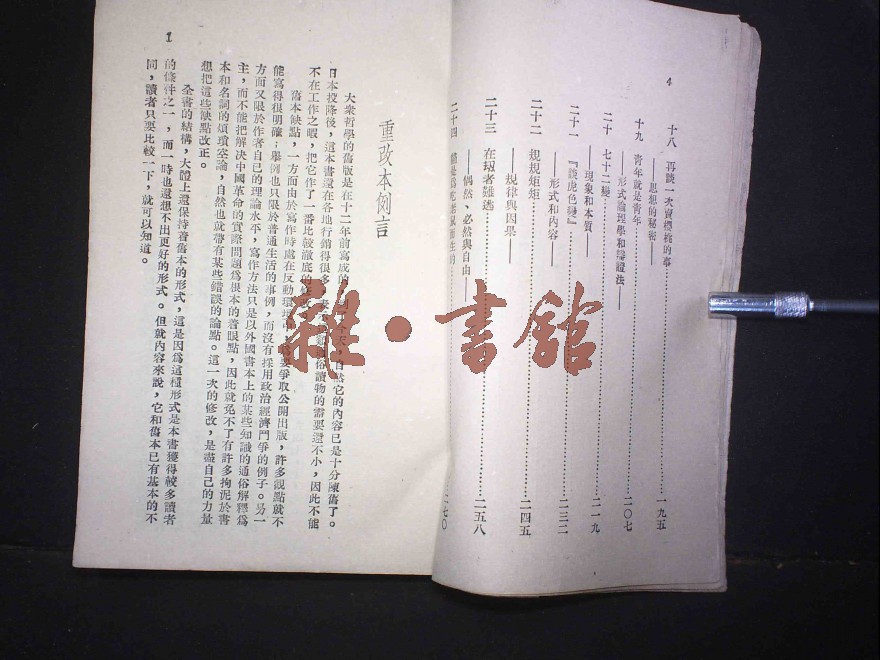 4
十八 再談一次賣梘梳的事……一九五
——思想的秘密——
十九 青年就是青年……二〇七
——形式論理學和辯證法——
二十 七十二變……二一九
——現象和本質——
二十一 『談虎色變』……二三二
——形式和內容——
二十二 規規矩矩……二四五
——規律與因果——
二十三 在刼者難逃……二五八
——偶然、必然與自由——
二十四 貓是爲吃老鼠而生的……二七〇
1
重改本例言
大衆哲學的舊版是在十二年前寫成的,今天,自然它的內容已是十分陳舊了。
日本投降後,這本書還在各地行銷得很多,俗讀物的需要還不小,因此不能
不在工作之暇,把它作了一番比較澈底的
舊本缺點,一方面由於寫作時處在反動環境爲要爭取公開出版,許多觀點就不
能寫得很明確;舉例也只限於普通生活的事例,而沒有採用政治經濟鬥爭的例子。另一
方面又限於作者自己的理論水平,寫作方法只是以外國書本上的某些知識的通俗解釋爲
主,而不能把解決中國革命的實際問題爲根本的着眼點,因此就免不了有許多拘泥於書
本和名詞的煩瑣空論,自然也就帶有某些錯誤的論點。這一次的修改,是盡自己的力量
想把這些缺點改正。
全書的結構,大體上還保持着舊本的形式,這是因爲這種形式是本書獲得較多讀者
的條件之一,而一時也還想不出更好的形式。但就內容來說,它和舊本已有基本的不
同,讀者只要比較一下,就可以知道。
雜·書館